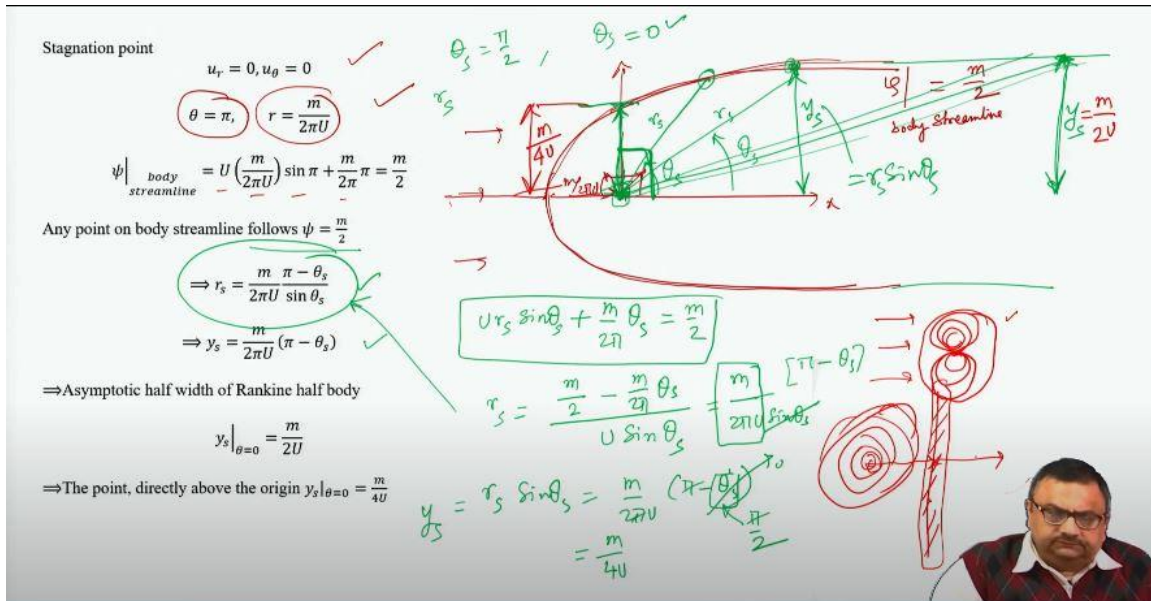 Stagnation point
u_r = 0, u_θ = 0
θ = π, r = m/2πU
ψ| body streamline = U(m/2πU) sin π + m/2π π = m/2
Any point on body streamline follows ψ = m/2
⟹ r_s = m/2πU (π − θ_s)/sin θ_s
⟹ y_s = m/2πU (π − θ_s)
⟹Asymptotic half width of Rankine half body
y_s|θ=0 = m/2U
⟹The point, directly above the origin y_s|θ=0 = m/4U
θ_s = π/2 , θ_s = 0
r_s
m/4U
m/2πU
r_s
r_s
θ_s
θ_s
y_s
= r_s Sinθ_s
x
ψ| = m/2
body streamline
y_s = m/2U
U r_s Sinθ_s + m/2π θ_s = m/2
r_s = (m/2 − m/2π θ_s)/(U Sin θ_s) = m/(2πU Sinθ_s) [π − θ_s]
y_s = r_s Sinθ_s = m/2πU (π − θ_s)
0
π/2
= m/4U